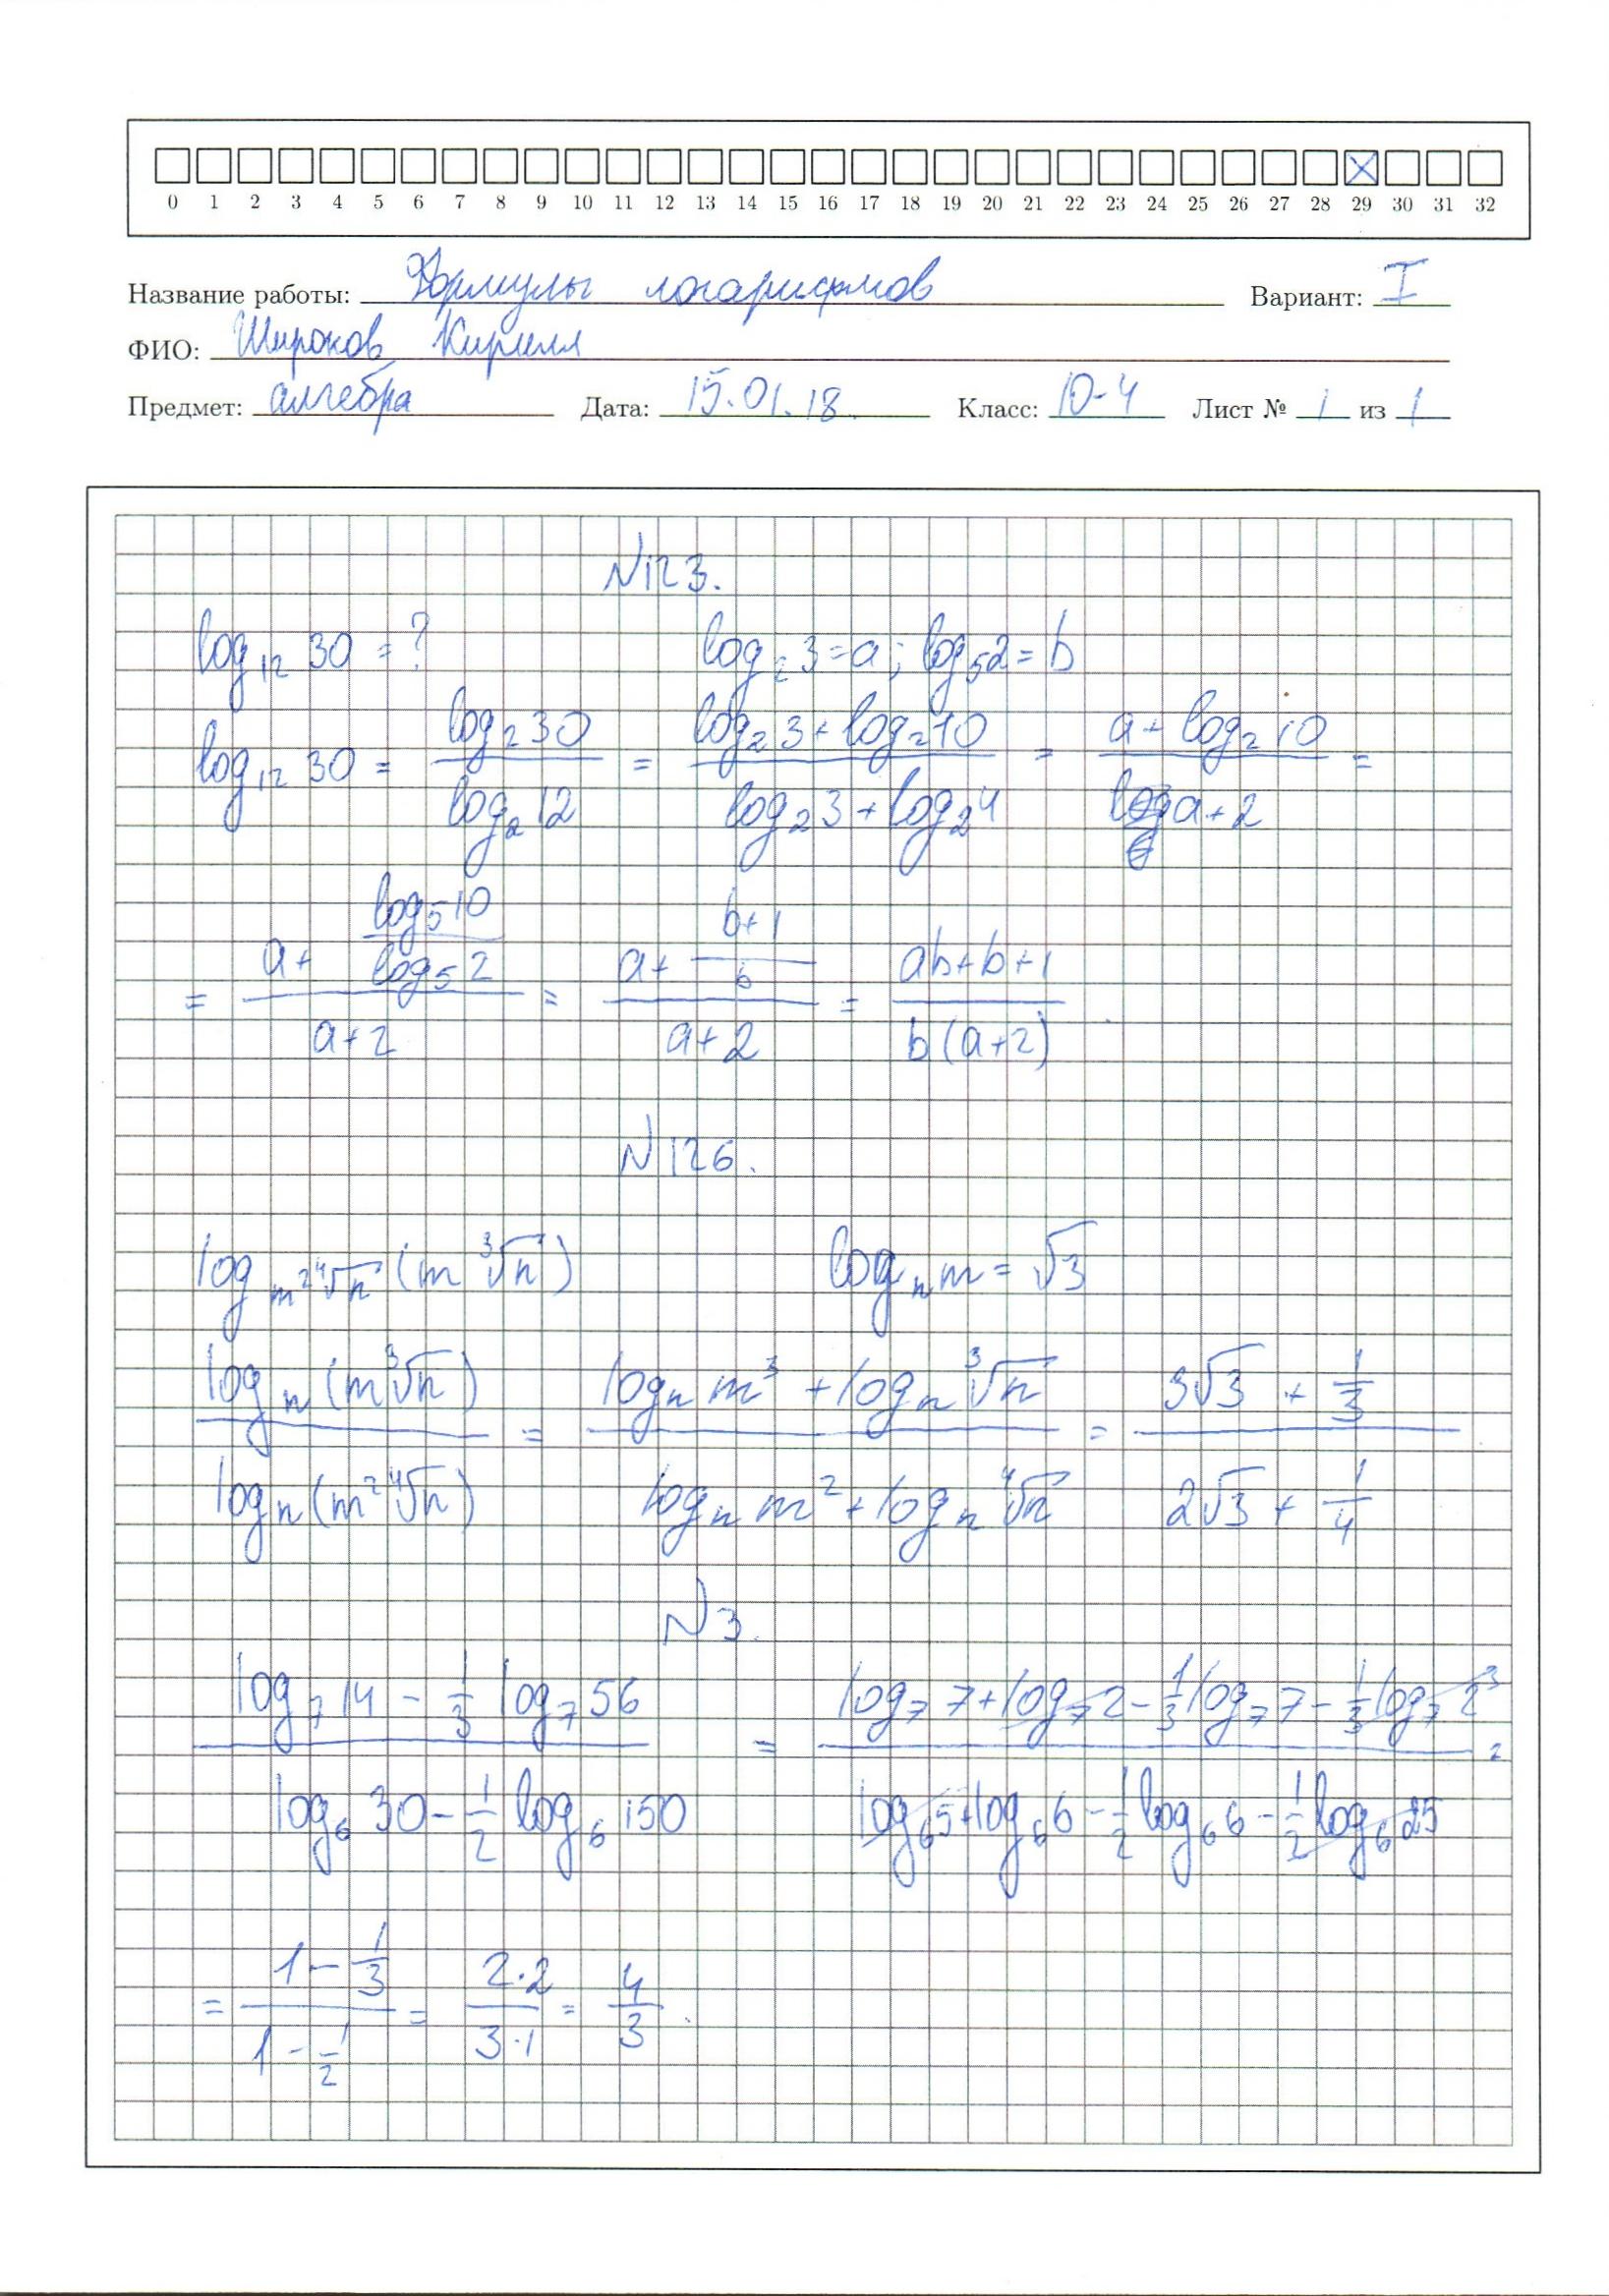 0 1 2 3 4 5 6 7 8 9 10 11 12 13 14 15 16 17 18 19 20 21 22 23 24 25 26 27 28 29 30 31 32
Название работы: Формулы логарифмов Вариант: I
ФИО: Широков Кирилл
Предмет: алгебра Дата: 15.01.18. Класс: 10-4 Лист № 1 из 1
N123.
log₁₂ 30 = ? log₂ 3 = a; log₅ 2 = b
log₁₂ 30 = \frac{log₂ 30}{log₂ 12} = \frac{log₂ 3 + log₂ 10}{log₂ 3 + log₂ 4} = \frac{a + log₂ 10}{a + 2} =
= \frac{a + \frac{log₅ 10}{log₅ 2}}{a + 2} = \frac{a + \frac{b+1}{b}}{a + 2} = \frac{ab + b + 1}{b(a+2)}
N126.
log_{m²∜n} (m ∛n) logₙ m = √3
\frac{logₙ (m ∛n)}{logₙ (m² ∜n)} = \frac{logₙ m³ + logₙ ∛n}{logₙ m² + logₙ ∜n} = \frac{3√3 + \frac{1}{3}}{2√3 + \frac{1}{4}}
N3.
\frac{log₇ 14 - \frac{1}{3} log₇ 56}{log₆ 30 - \frac{1}{2} log₆ 150} = \frac{log₇ 7 + log₇ 2 - \frac{1}{3} log₇ 7 - \frac{1}{3} log₇ 2³}{log₆ 5 + log₆ 6 - \frac{1}{2} log₆ 6 - \frac{1}{2} log₆ 25} =
= \frac{1 - \frac{1}{3}}{1 - \frac{1}{2}} = \frac{2·2}{3·1} = \frac{4}{3}.